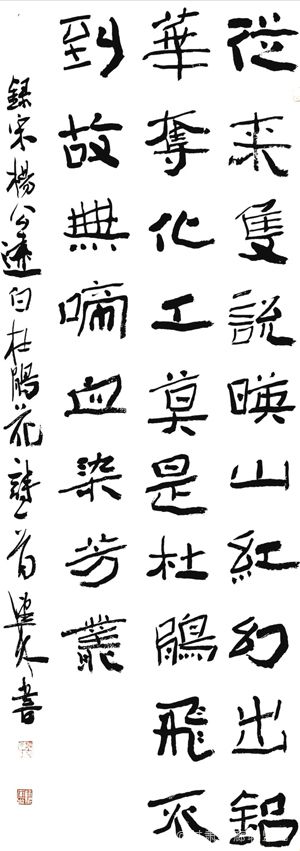 從来隻説暎山紅幻出鉛
華奪化工莫是杜鵑飛不
到故無啼血染芳叢
録宋楊公遠白杜鵑花詩一首 書